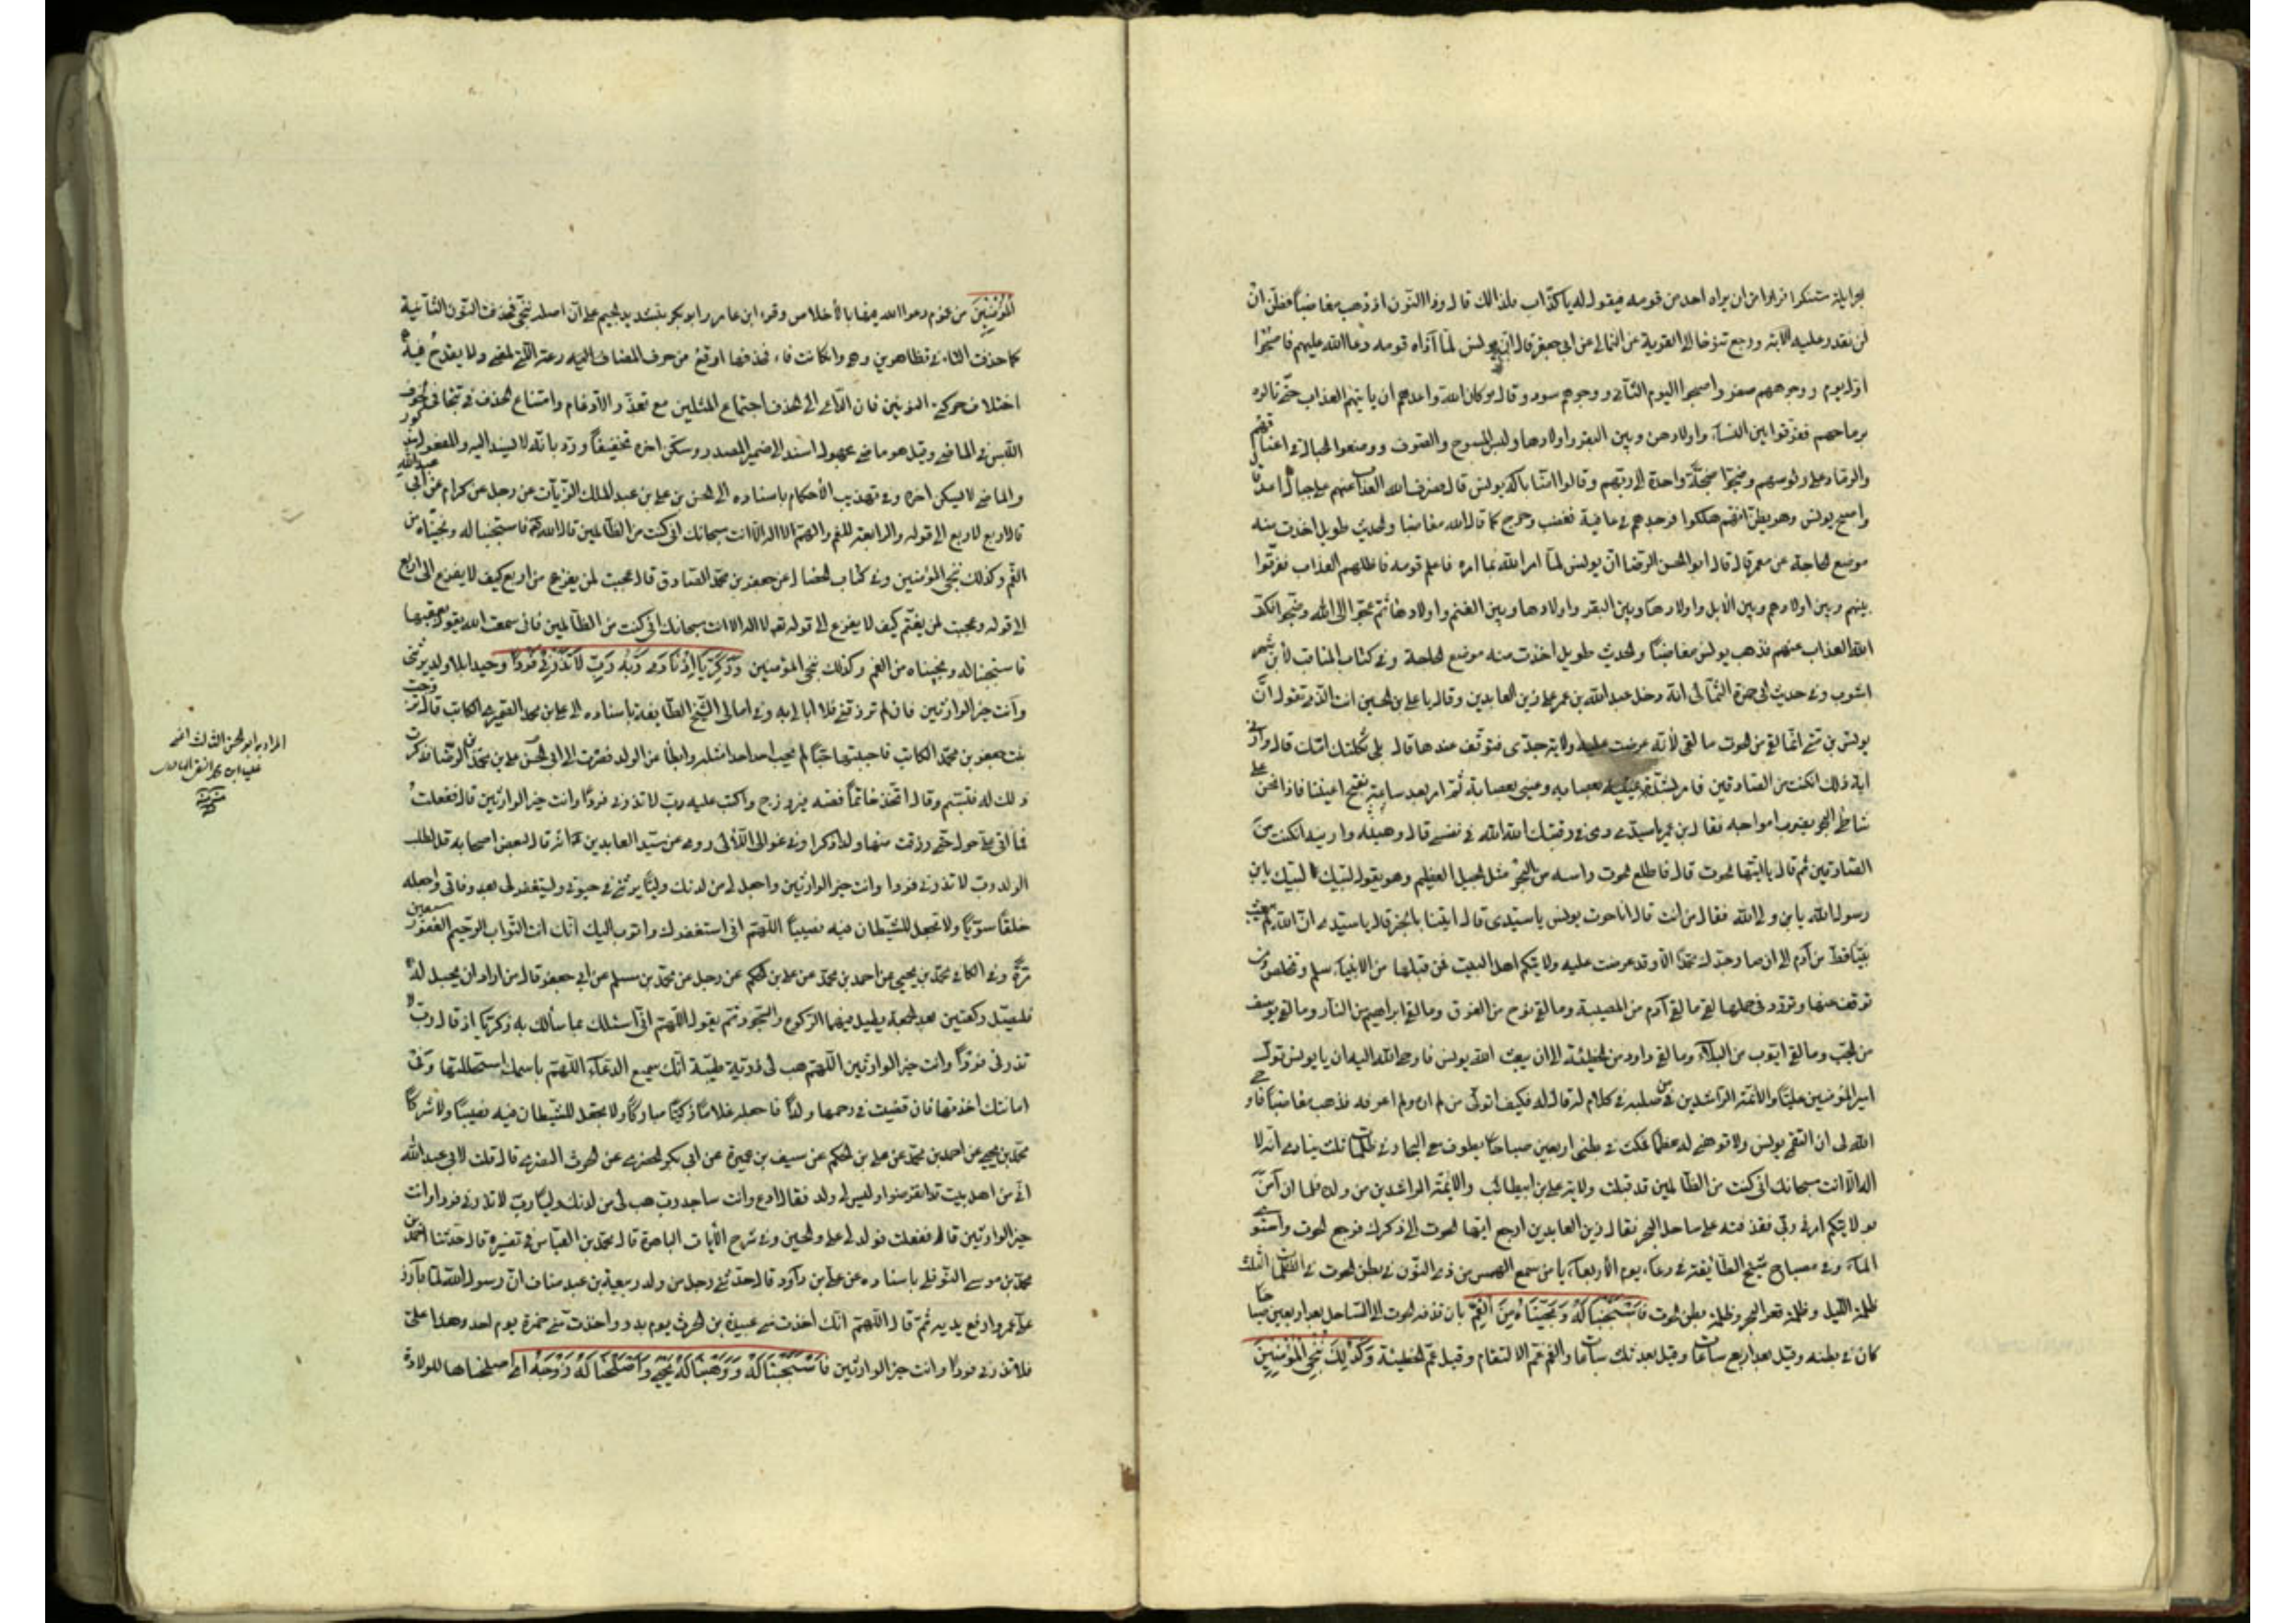 لن نقدر عليه الآية ورجع تنوخا الى القرية عن الثمالي عن ابي جعفر قال ان يونس لما آذاه قومه دعا الله عليهم فاصبحوا
اول يوم ووجوههم صفر واصبحوا اليوم الثاني ووجوههم سود وقال وكان الله واعدهم ان يأتيهم العذاب حتى نالوه
برماحهم ففرقوا بين النساء واولادهن وبين البقر واولادها ولبس المسوح والصوف ووضعوا الحبال في اعناقهم
والرماد على رؤسهم وضجوا ضجة واحدة الى ربهم وقالوا آمنا باله يونس قال فصرف الله العذاب عنهم الى جبال آمد قال
واصبح يونس وهو يظن انهم هلكوا فوجدهم في عافية فغضب وخرج كما قال الله مغاضبا والحديث طويل اخذت منه
موضع الحاجة عن معمر قال قال ابو الحسن الرضا ان يونس لما امره الله بما امره فاعلم قومه فاظلهم العذاب ففرقوا
بينهم وبين اولادهم وبين الابل واولادها وبين البقر واولادها وبين الغنم واولادها ثم عجوا الى الله وضجوا فكف
الله العذاب عنهم فذهب يونس مغاضبا والحديث طويل اخذت منه موضع الحاجة وفي كتاب المناقب لابن شهر
آشوب وفي حديث ابي حمزة الثمالي انه دخل عبد الله بن عمر على زين العابدين وقال يا علي بن الحسين انت الذي تقول ان
يونس بن متى انما لقى من الحوت ما لقى لانه عرضت عليه ولاية جدي فتوقف عندها قال بلى ثكلتك امك قال فارني
آية ذلك ان كنت من الصادقين فامر بشد عينيه بعصابة وعيني بعصابة ثم امر بعد ساعة بفتح اعيننا فاذا نحن على
شاطئ البحر يضرب امواجه فقال ابن عمر يا سيدي دمي في رقبتك الله الله في نفسي قال هيه واريه ان كنت من
الصادقين ثم قال يا ايتها الحوت قال فاطلع الحوت رأسه من البحر مثل الجبل العظيم وهو يقول لبيك لبيك يا ولي
الله فقال من انت قال انا حوت يونس يا سيدي قال ايتنا بالخبر قال يا سيدي ان الله لم يبعث
نبيا قط من آدم الى ان صار جدك محمد الا وقد عرضت عليه ولايتكم اهل البيت فمن قبلها من الانبياء سلم وتخلص ومن
توقف عنها وتردد في حملها لقى ما لقى آدم من المصيبة وما لقى نوح من الغرق وما لقى ابراهيم من النار وما لقى يوسف
من الجب وما لقى ايوب من البلاء وما لقى داود من الخطيئة الى ان بعث الله يونس فاوحى الله اليه ان يا يونس تول
امير المؤمنين عليا والائمة الراشدين من صلبه في كلام له قال فكيف اتولى من لم اره ولم اعرفه فذهب مغاضبا فاوحى
الله الي ان التقمي يونس ولا توهني له عظما فمكث في بطني اربعين صباحا يطوف مع البحار في ظلمات ثلث ينادي انه لا
اله الا انت سبحانك اني كنت من الظالمين قد قبلت ولاية علي بن ابيطالب والائمة الراشدين من ولده فلما ان آمن
بولايتكم امرني ربي فقذفته على ساحل البحر فقال زين العابدين ارجع ايها الحوت الى وكرك فرجع الحوت واستوى
الماء وفي مصباح شيخ الطائفة في دعاء يوم الاربعاء يا من سمع الهمس من ذي النون في بطن الحوت في الظلمات الثلث
ظلمة الليل وظلمة قعر البحر وظلمة بطن الحوت فَاسْتَجَبْنَا لَهُ وَنَجَّيْنَاهُ مِنَ الْغَمِّ بان قذفه الحوت الى الساحل بعد اربعين صباحا
كان في بطنه وقيل بعد اربع ساعات وقيل بعد ثلث ساعات والغم غم الالتقام وقيل غم الخطيئة وَكَذٰلِكَ نُنْجِي الْمُؤْمِنِينَ
الْمُؤْمِنِينَ من غموم دعوا الله فيها بالاخلاص وقرء ابن عامر وابو بكر بتشديد الجيم على ان اصله ننجي فحذفت النون الثانية
كما حذفت التاء في تظاهرون وهي وان كانت فاء فحذفها اوقع من حرف المضارعة التي لمعنى ولا يقدح فيه
اختلاف حركتي النونين فان الداعي الى الحذف اجتماع المثلين مع تعذر الادغام وامتناع الحذف في تتجافى لخوف
اللبس في الماضي وقيل هو ماضي مجهول اسند الى ضمير المصدر وسكن اخره تخفيفا ورد بانه لا يسند اليه والمفعول مذكور
والماضي لا يسكن اخره وفي تهذيب الاحكام باسناده الى الحسن بن علي بن عبد الملك الزيات عن رجل عن كرام عن ابي عبد الله
قال اربع لاربع الى قوله والرابعة للغم والهم لا اله الا انت سبحانك اني كنت من الظالمين قال الله فاستجبنا له ونجيناه من
الغم وكذلك ننجي المؤمنين وفي كتاب الخصال عن جعفر بن محمد الصادق قال عجبت لمن يفزع من اربع كيف لا يفزع الى اربع
الى قوله وعجبت لمن يغتم كيف لا يفزع الى قوله تع لا اله الا انت سبحانك اني كنت من الظالمين فاني سمعت الله يقول بعقبها
فاستجبنا له ونجيناه من الغم وكذلك ننجي المؤمنين وَزَكَرِيَّا إِذْ نَادٰى رَبَّهُ رَبِّ لَا تَذَرْنِي فَرْدًا وحيدا بلا ولد يرثني
وانت خير الوارثين فان لم ترزقني فلا ابالي به وفي امالي الشيخ الطائفة باسناده الى علي بن محمد الكاتب قال تزوجت
بنت جعفر بن محمد الكاتب فاحببتها حبا لم يحب احد احدا مثله وابطأ من الولد فصرت الى ابي الحسن علي بن محمد بن الرضا فذكرت
ذلك له فتبسم وقال اتخذ خاتما فصه فيروزج واكتب عليه رب لا تذرني فردا وانت خير الوارثين قال ففعلت
فما اتى علي حول حتى رزقت منها ولدا ذكرا وفي عوالي اللآلي روي عن سيد العابدين انه قال لبعض اصحابه قل لطلب
الولد رب لا تذرني فردا وانت خير الوارثين واجعل لي من لدنك وليا يرثني في حيوتي ويستغفر لي بعد وفاتي واجعله
خلقا سويا ولا تجعل للشيطان فيه نصيبا اللهم اني استغفرك واتوب اليك انك انت التواب الرحيم الغفور سبعين
مرة وفي الكافي محمد بن يحيى عن احمد بن محمد عن علي بن الحكم عن رجل عن محمد بن مسلم عن ابي جعفر قال من اراد ان يحبل له
فليصل ركعتين بعد الجمعة يطيل فيهما الركوع والسجود ثم يقول اللهم اني اسئلك بما سألك به زكريا اذ قال رب لا
تذرني فردا وانت خير الوارثين اللهم هب لي ذرية طيبة انك سميع الدعاء اللهم باسمك استحللتها وفي
امانتك اخذتها فان قضيت في رحمها ولدا فاجعله غلاما زكيا مباركا ولا تجعل للشيطان فيه نصيبا ولا شركا
محمد بن يحيى عن احمد بن محمد عن علي بن الحكم عن سيف بن عميرة عن ابي بكر الحضرمي عن الحرث النصري قال قلت لابي عبد الله
اني من اهل بيت قد انقرضوا وليس لي ولد فقال ادع وانت ساجد رب هب لي من لدنك وليا رب لا تذرني فردا وانت
خير الوارثين قال ففعلت فولد لي علي والحسين وفي شرح الآيات الباهرة قال محمد بن العباس في تفسيره قال حدثنا احمد بن
محمد بن موسى النوفلي باسناده عن علي بن داود قال حدثني رجل من ولد ربيعة بن عبد مناف ان رسول الله لما بارز
علي عمروا رفع يديه ثم قال اللهم انك اخذت مني عبيدة بن الحرث يوم بدر واخذت مني حمزة يوم احد وهذا علي
فلا تذرني فردا وانت خير الوارثين فَاسْتَجَبْنَا لَهُ وَوَهَبْنَا لَهُ يَحْيٰى وَأَصْلَحْنَا لَهُ زَوْجَهُ اي اصلحناها للولادة
المراد به ابو الحسن الثالث